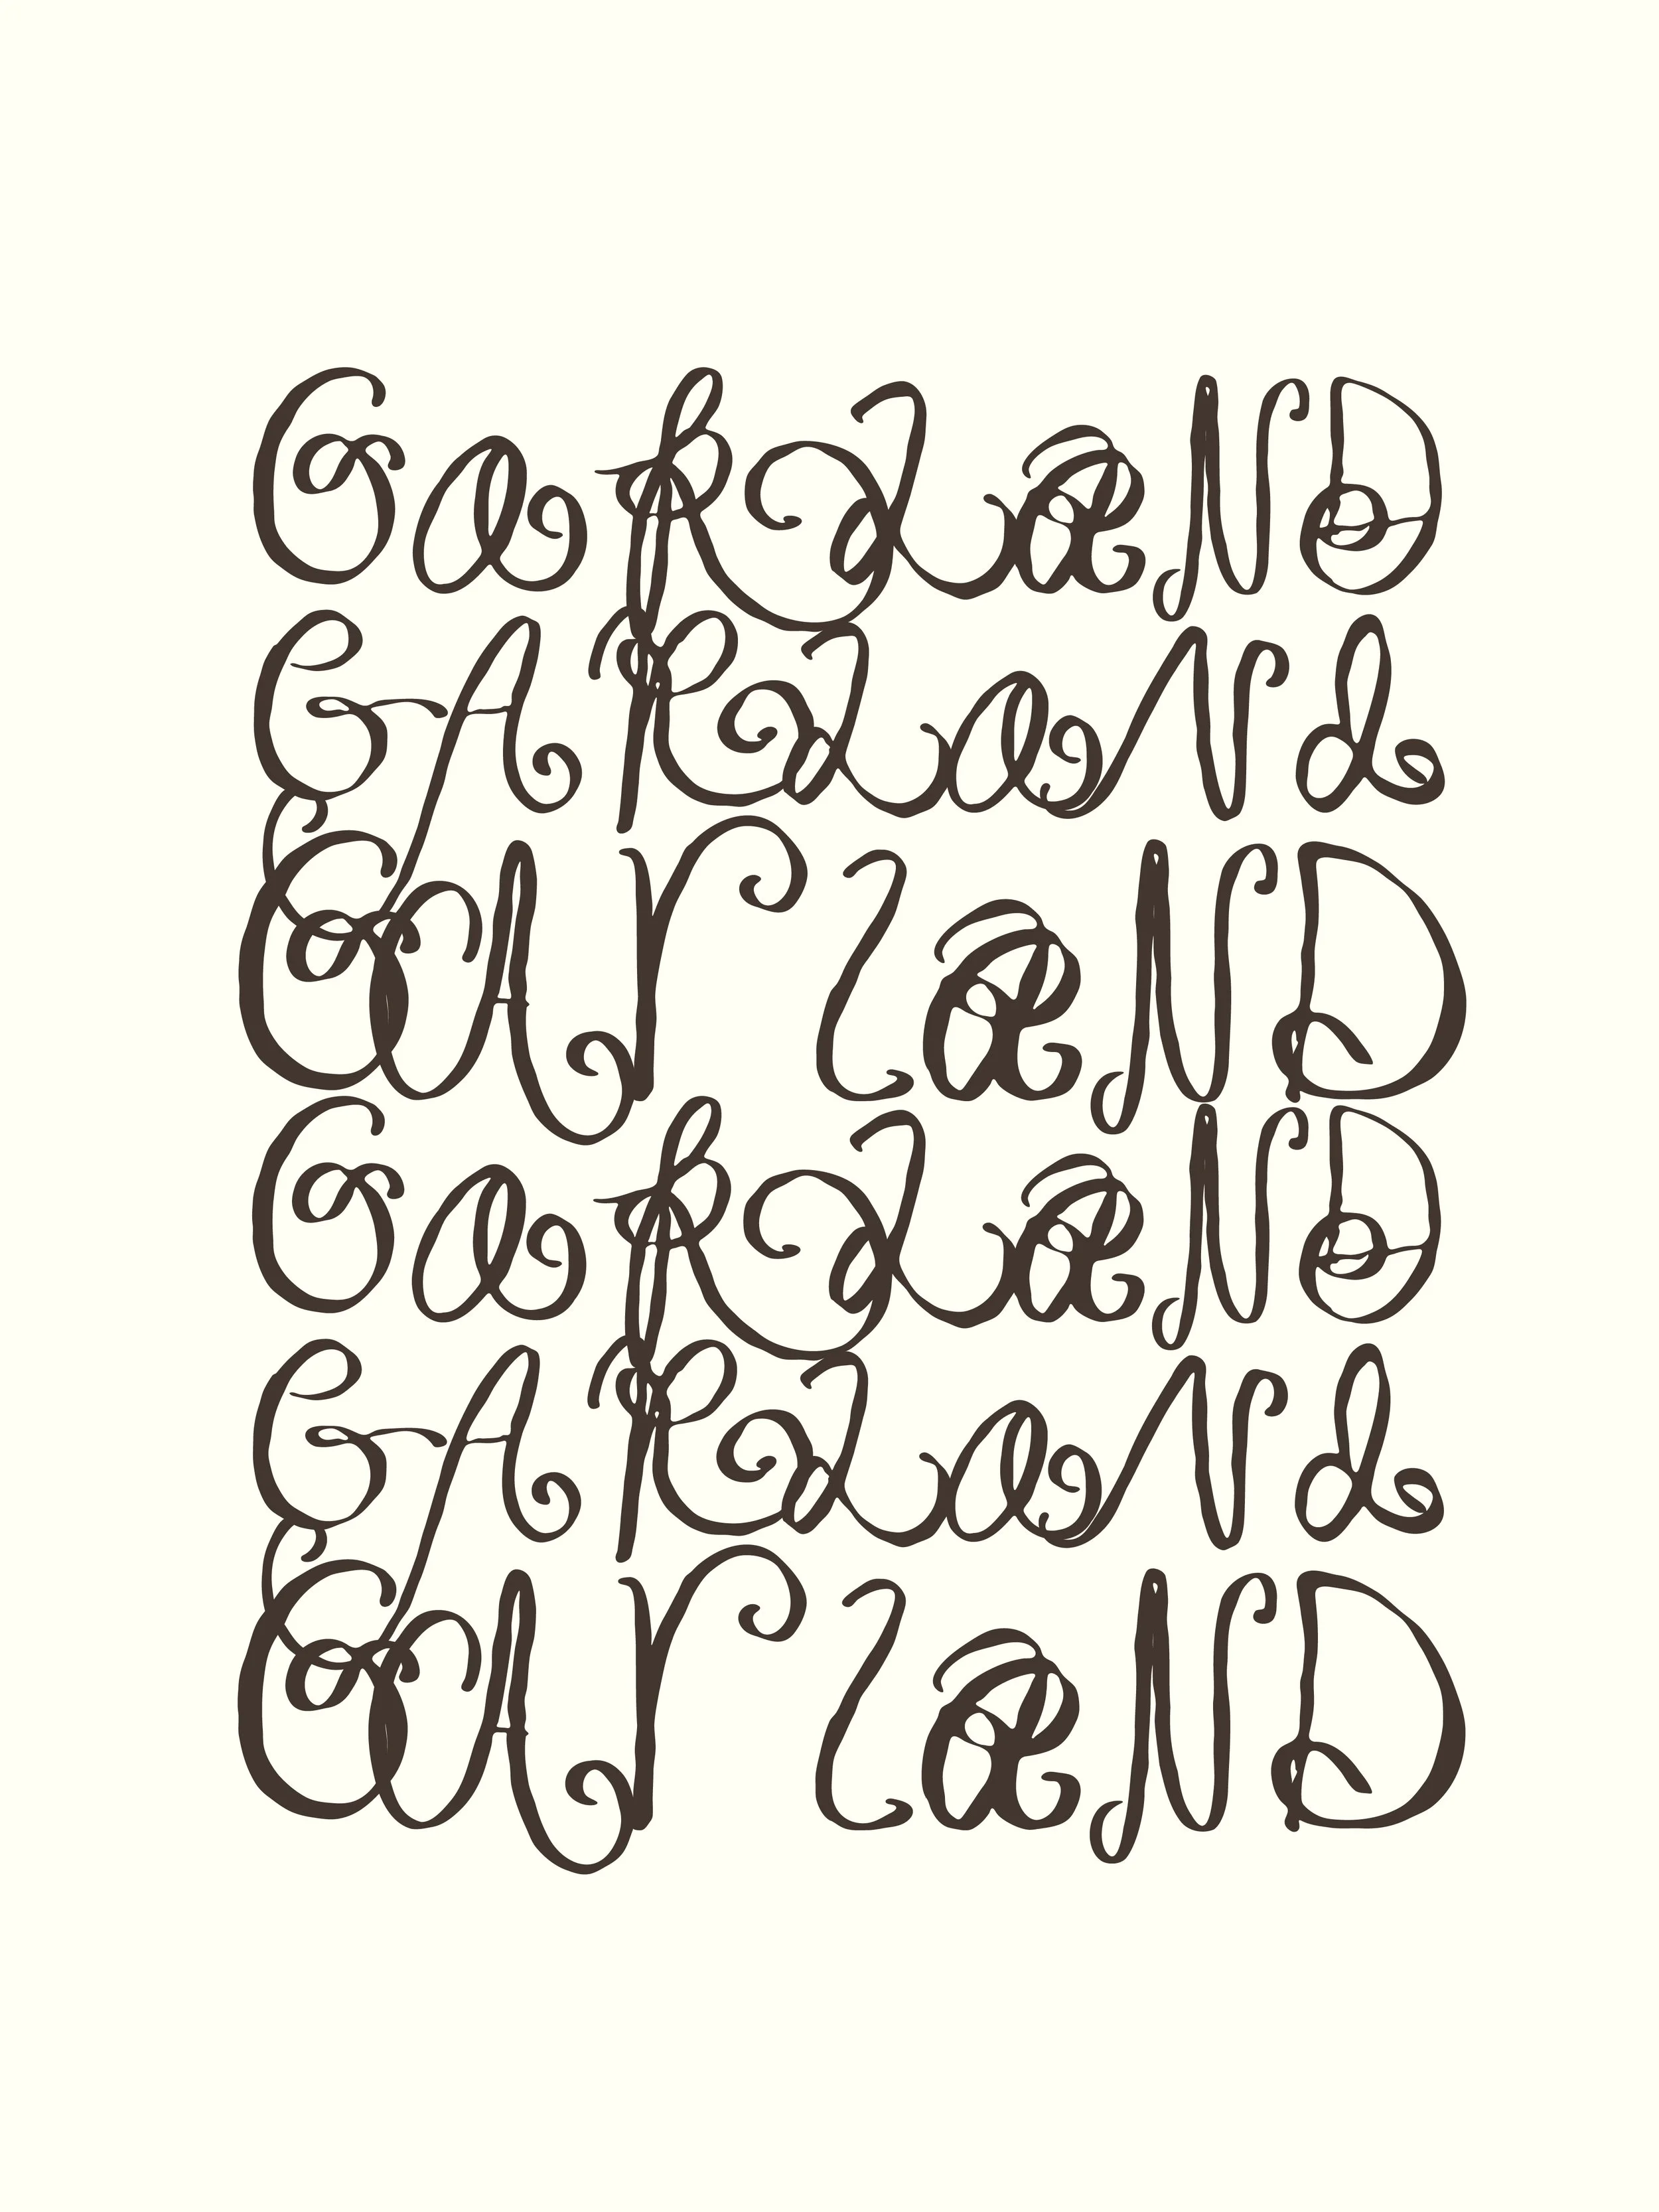 GaRlaND
GARlaNd
GaRlaND
GaRlaND
GARlaNd
GaRlaND